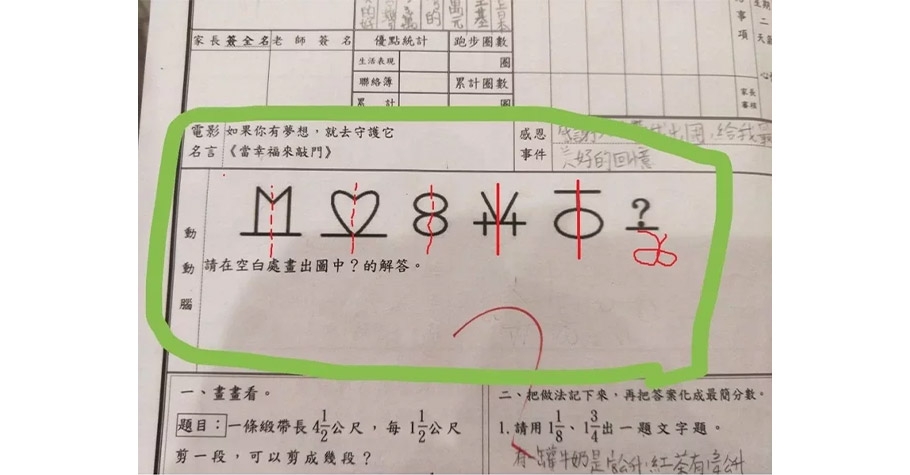 家長簽全名 老師簽名 優點統計 跑步圈數
生活表現 圈
聯絡簿 累計圈數
累計 圈
事
項
電影
名言
如果你有夢想，就去守護它
《當幸福來敲門》
感恩
事件
給我最
好的回憶
8 ?
動
動
腦
請在空白處畫出圖中？的解答。
一、畫畫看。
題目：一條緞帶長4 1/2公尺，每1 1/2公尺
剪一段，可以剪成幾段？
二、把做法記下來，再把答案化成最簡分數。
1.請用1 1/8、1 3/4出一題文字題。
有一罐牛奶是
紅茶有